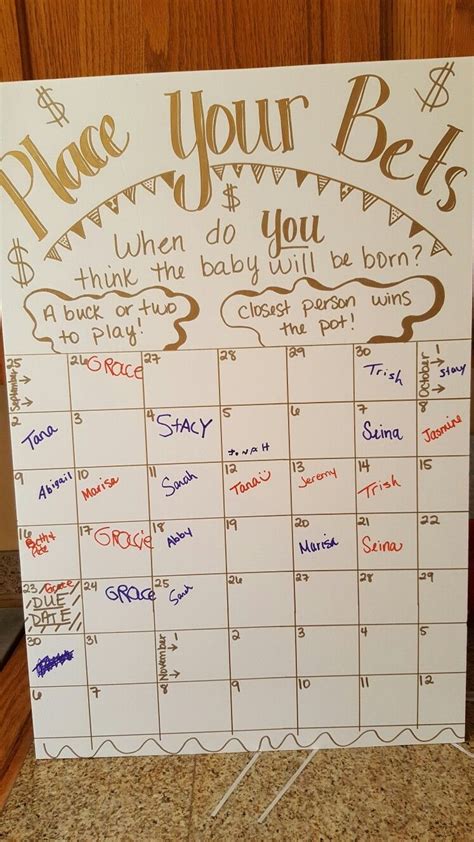 $ $
Place Your Bets
$ $
When do YOU
think the baby will be born?
A buck or two
to play!
closest person wins
the pot!
25 26 27 28 29 30 October 1
September GRACE Trish Stacy
2 3 4 5 6 7 8
Tana STACY JONAH Seina Jasmine
9 10 11 12 13 14 15
Abigail Marisa Sarah Tana Jeremy Trish
16 17 18 19 20 21 22
Beth & Pete GRACIE Abby Marisa Seina
23 24 25 26 27 28 29
Grace GRACE Sarah
DUE
DATE
30 31 November 1 2 3 4 5
6 7 8 9 10 11 12